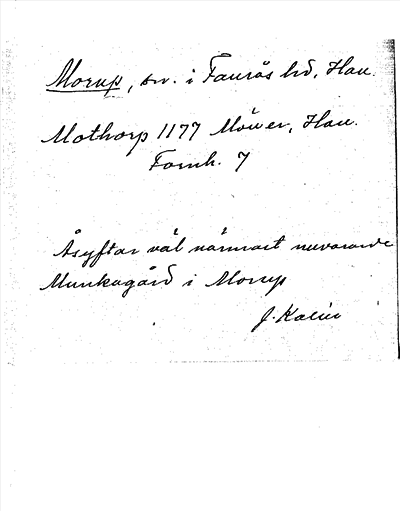 Morup, sn. i Faurås hd, Hau.
Mothorp 1177 Möwer, Hau.
Fornh. 7
Åsyftar väl närmast nuvarande
Munkagård i Morup
J. Kalén